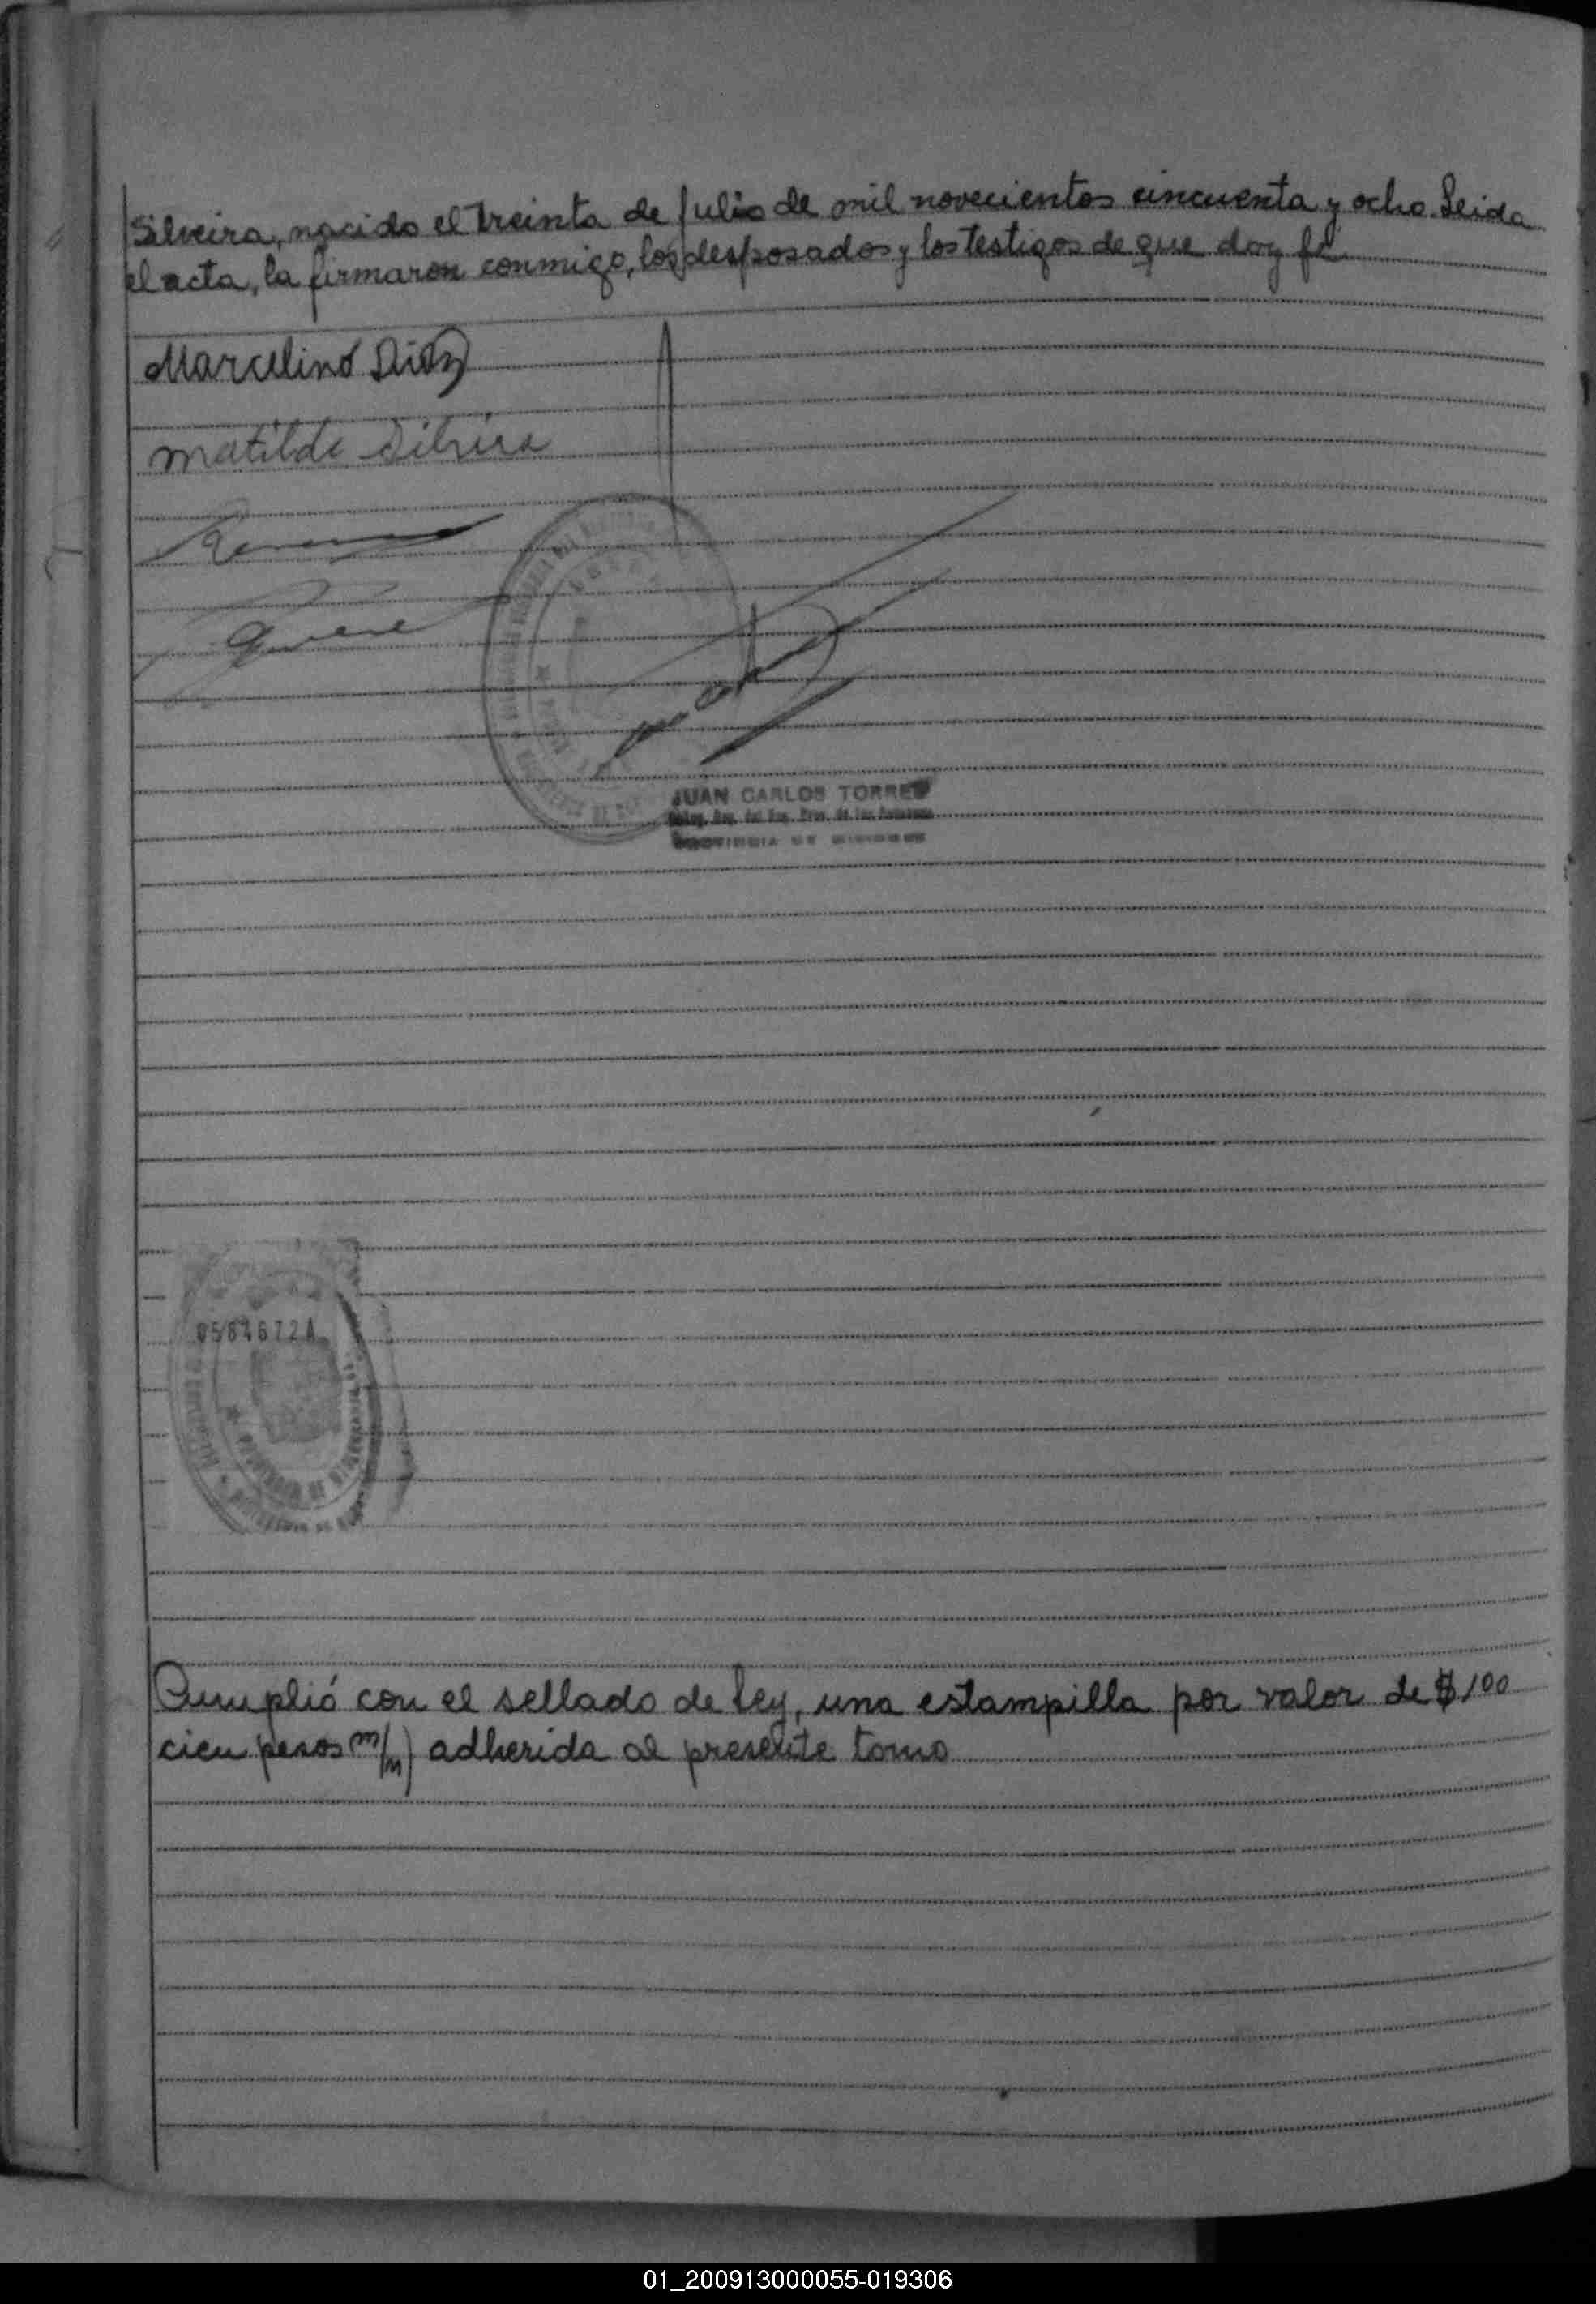 Silveira, nacido el treinta de Julio de mil novecientos cincuenta y ocho. Leida
el acta, la firmaron conmigo, los desposados y los testigos de que doy fé
Marcelino Diaz
Matilde Silveira
JUAN CARLOS TORRES
PROVINCIA DE MISIONES
Cumplió con el sellado de Ley, una estampilla por valor de $ 100
cien pesos m/n) adherida al presente tomo
01_200913000055-019306